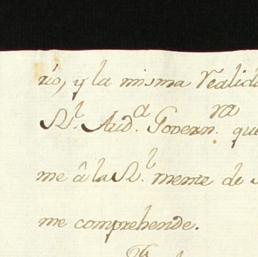 rio, y la misma realid
Rl. Auda. Governva. que
me â la Rl. mente de
me comprehende.